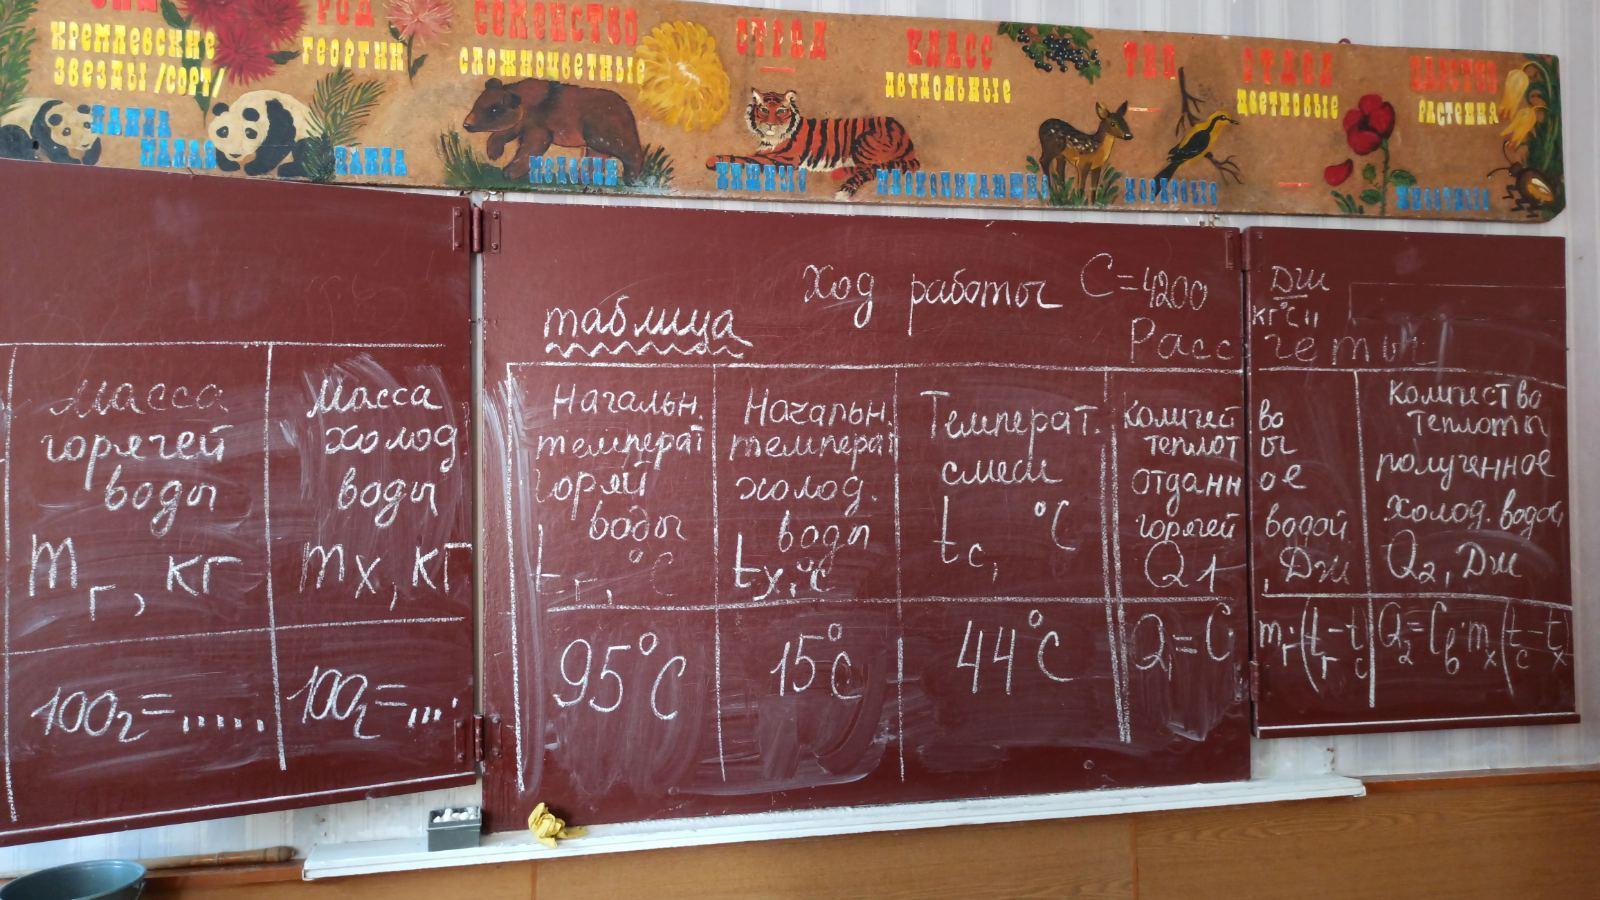 РОД СЕМЕЙСТВО ОТРЯД КЛАСС ТИП ОТДЕЛ ЦАРСТВО
КРЕМЛЕВСКИЕ
ЗВЕЗДЫ /СОРТ/
ГЕОРГИН
СЛОЖНОЦВЕТНЫЕ
ДВУДОЛЬНЫЕ
ЦВЕТКОВЫЕ
РАСТЕНИЯ
ПАНДА
МАЛАЯ
ПАНДА
МЕДВЕДИ
ХИЩНЫЕ
МЛЕКОПИТАЮЩИЕ
ХОРДОВЫЕ
ЖИВОТНЫЕ
Ход работы C=4200 Дж
кг°С
таблица
Расчеты
Масса
горячей
воды
mг, кг
Масса
холод
воды
mх, кг
Начальн.
температ
горяй
воды
tг, °C
Начальн.
температ
холод.
воды
tх, °C
Температ.
смеси
tс, °C
Количейво
теплоты
отданное
горячей водой
Q1, Дж
Количество
теплоты
полученное
холод. водой
Q2, Дж
100г=.....
100г=....
95°C
15°C
44°C
Q1=C mг·(tг-tс)
Q2=Cв·mх(tс-tх)